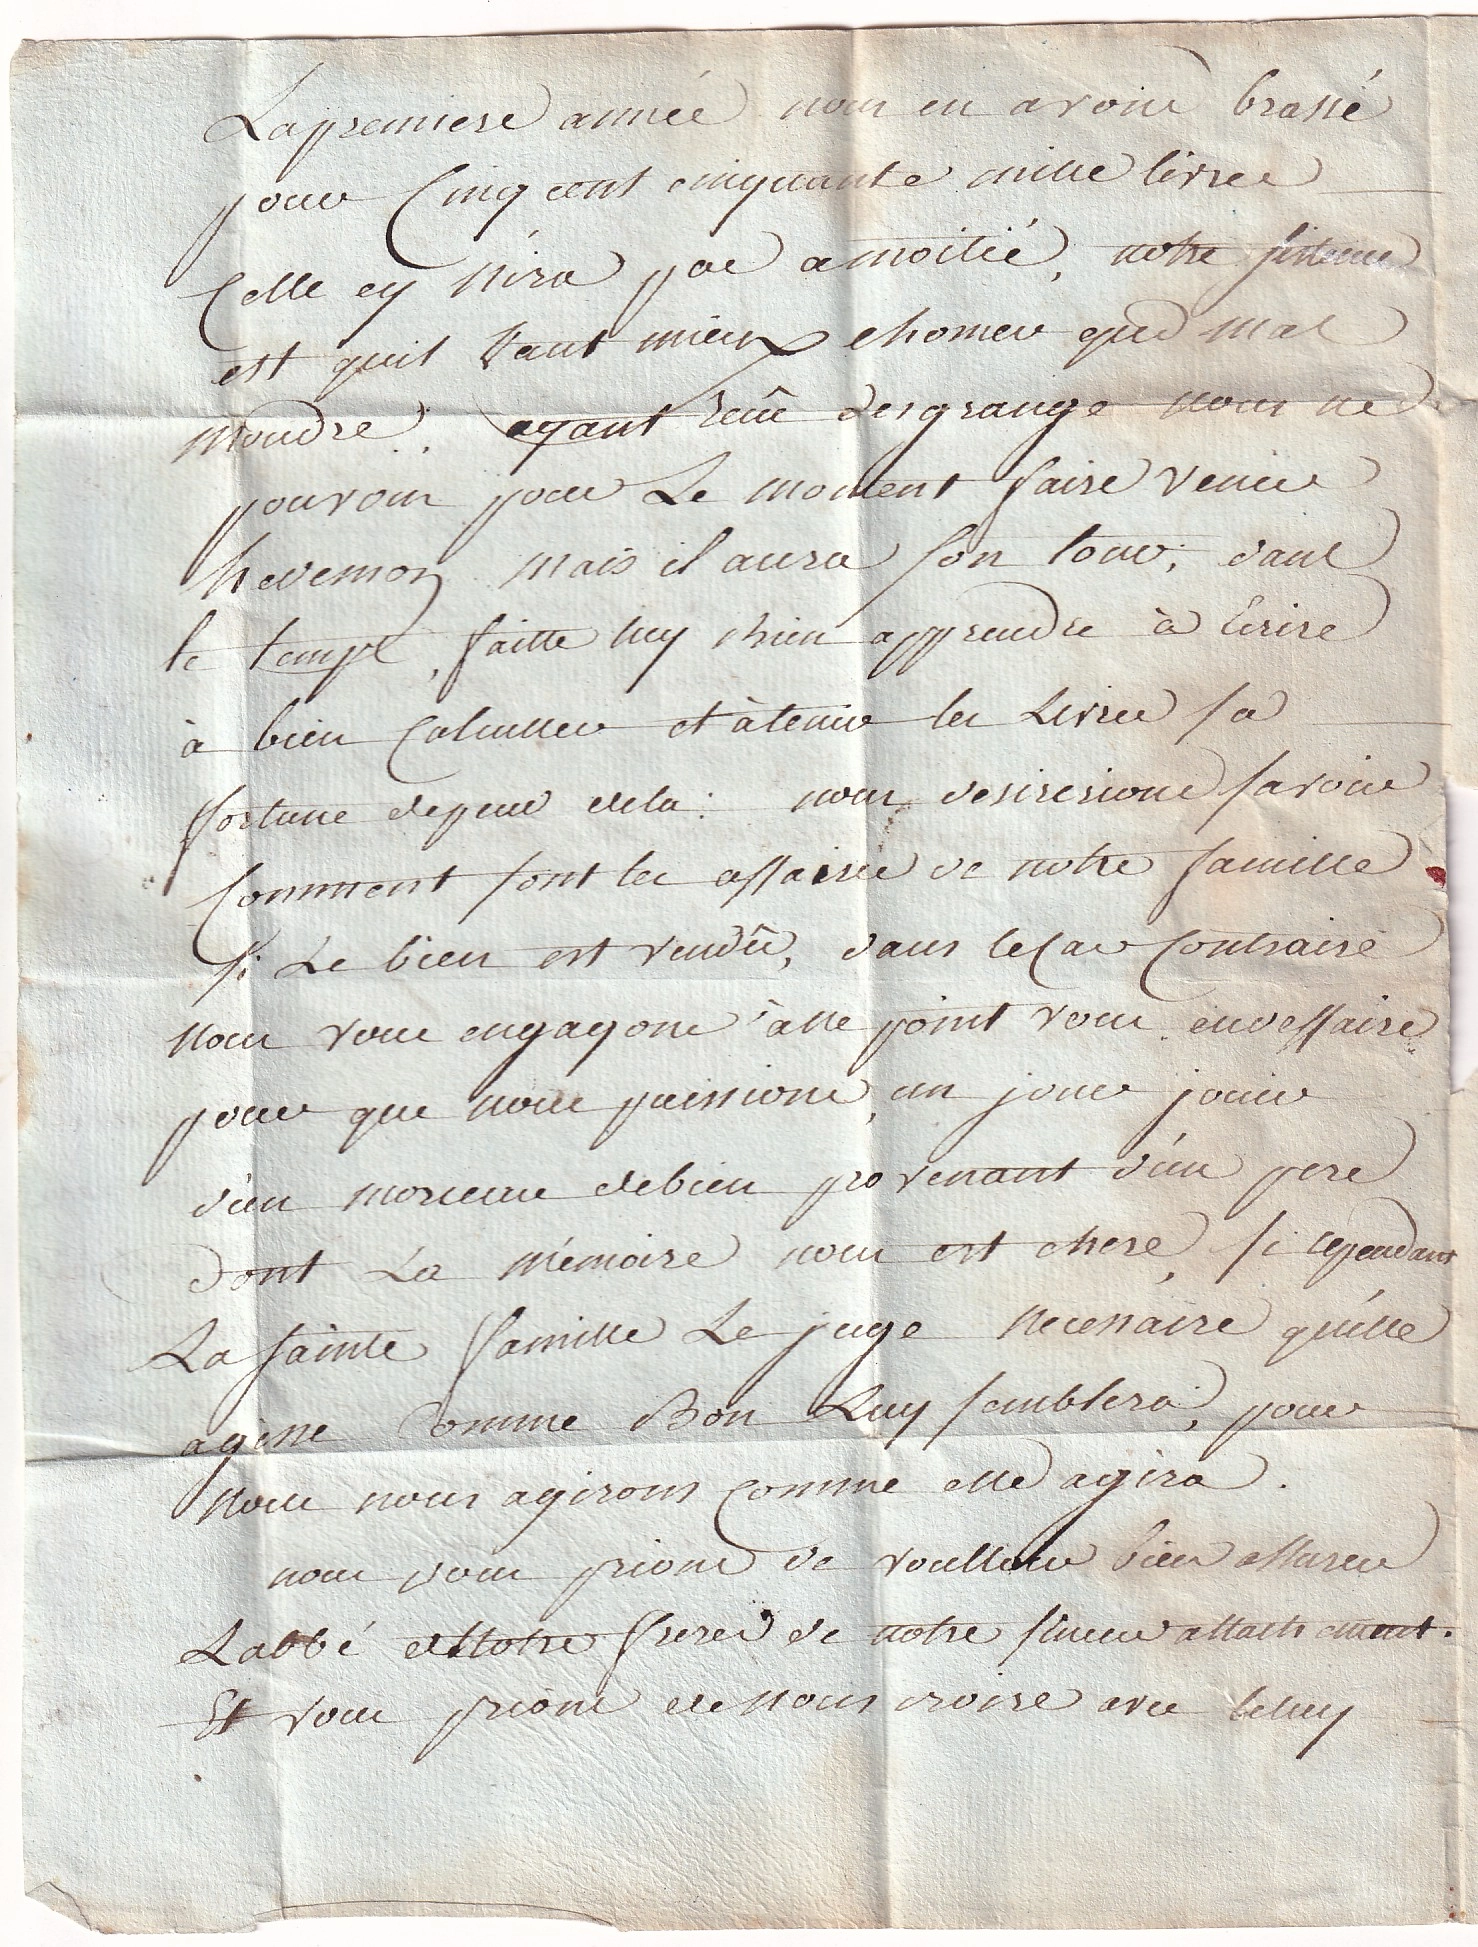 La premiere année nous en avons brassé
pour Cinq cent cinquante mille livres
Celle cy n'ira pas a moitié, notre sisteme
est quil vaut mieux chomer que mal
moudre. ayant reçû desgrange nous ne
pouvons pour Le moment faire venir
mais il aura son tour, dans
le temps, faitte luy bien apprendre à Ecrire
à bien Calculler et à tenir les Livres sa
fortune depend dela : nous desirerions savoir
Comment sont les affaires de notre famille
si Le bien est vendû, dans le Cas Contraire
nous vous engageons à ne point vous en deffaire
pour que nous puissions un jour jouir
d'un morceau de bien provenant d'un pere
dont La mémoire nous est chere, si cependant
La sainte famille Le juge necessaire qu'elle
agisse Comme Bon Luy semblera, pour
nous nous agirons Comme elle agira.
nous vous prions de voulloir bien assurer
Labbé et notre frere de notre sincere attachement.
Et vous prions de nous croire avec celuy